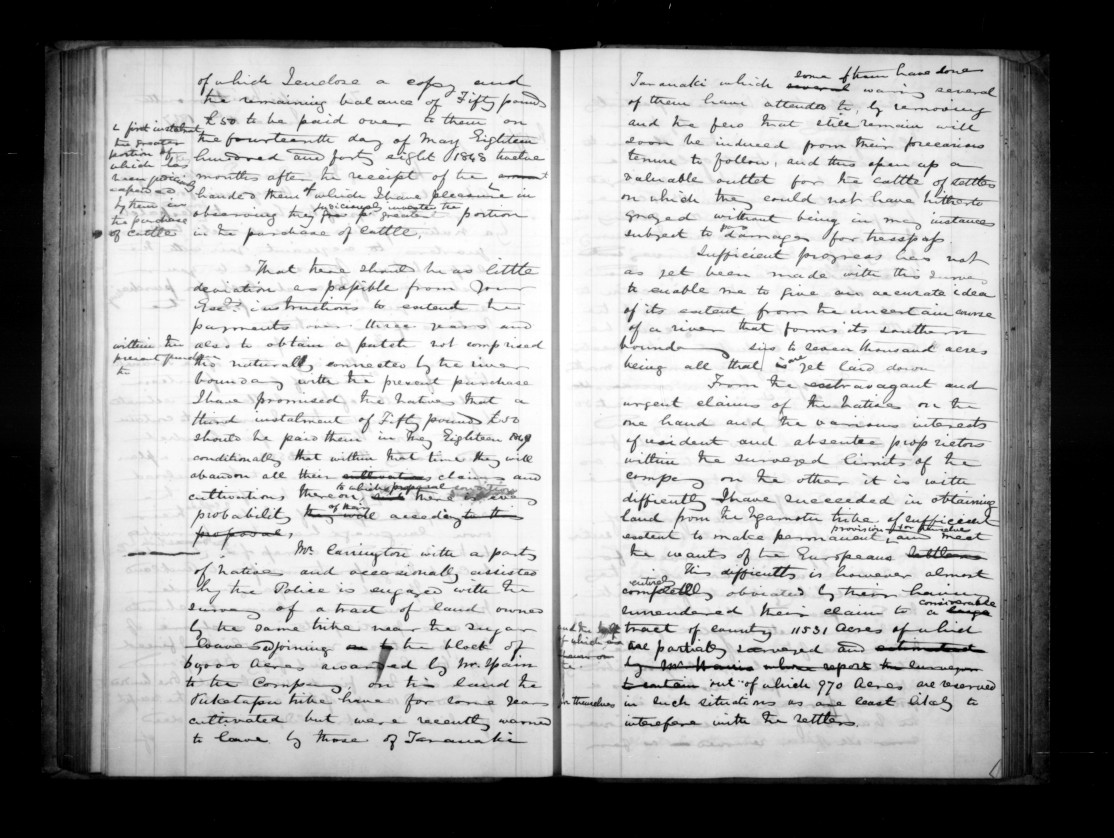 of which I enclose a copy and
the remaining balance of Fifty pounds
£50 to be paid over to them on
the fourteenth day of May Eighteen
hundred and forty eight 1848 twelve
months after the receipt of the amount
handed them & which I have pleasure in
observing they judiciously invested the greatest portion
in the purchase of cattle.
& first instalment
the greater
portion of
which has
been
expended
by them in
the purchase
of cattle
That there should be as little
deviation as possible from Your
Excys. instructions to extend the
payments over three years and
also to obtain a patch not comprised
within the
present purchase
tho naturally connected by the river
boundary with the present purchase
I have promised the natives that a
third instalment of Fifty pounds £50
should be paid them in May Eighteen 1849
conditionally that within that time they will
abandon all their cultivations claims and
cultivations thereon to which proposed condition there is every
probability of their acceding to this
proposal.
Mr. Carrington with a party
of natives and occasionally assisted
by the Police is engaged with the
survey of a tract of land owned
by the same tribe near the Sugar
Loaves adjoining to the block of
60,000 Acres awarded by Mr. Spain
to the Company, on this land the
Puketapu tribe have for some years
cultivated but were recently warned
to leave by those of Taranaki
Taranaki which some of them have done several
of them have attended to, by removing
and the few that still remain will
soon be induced from their precarious
tenure to follow, and thus open up a
valuable outlet for the cattle of settlers
on which they could not have hitherto
grazed without being in many instances
subject to damages for trespass.
Sufficient progress has not
as yet been made with this survey
to enable me to give an accurate idea
of its extent from the uncertain course
of a river that forms its southern
boundary six to seven thousand acres
being all that is are yet laid down
From the extravagant and
urgent claims of the Natives on the
one hand and the various interests
of resident and absentee proprietors
within the surveyed limits of the
company on the other it is with
difficulty I have succeeded in obtaining
land from the Ngamotu tribe of sufficient
extent to make permanent provision for and meet
the wants of the Europeans settlers
This difficulty is however almost
entirely completely obviated by them having
surrendered their claim to a considerable large
tract of country 11531 Acres of which
are partially surveyed and estimated
by Mr. Harris whose report the surveyor
to contain out of which 970 Acres are reserved
for themselves
in such situations as are least likely to
interfere with the settlers.